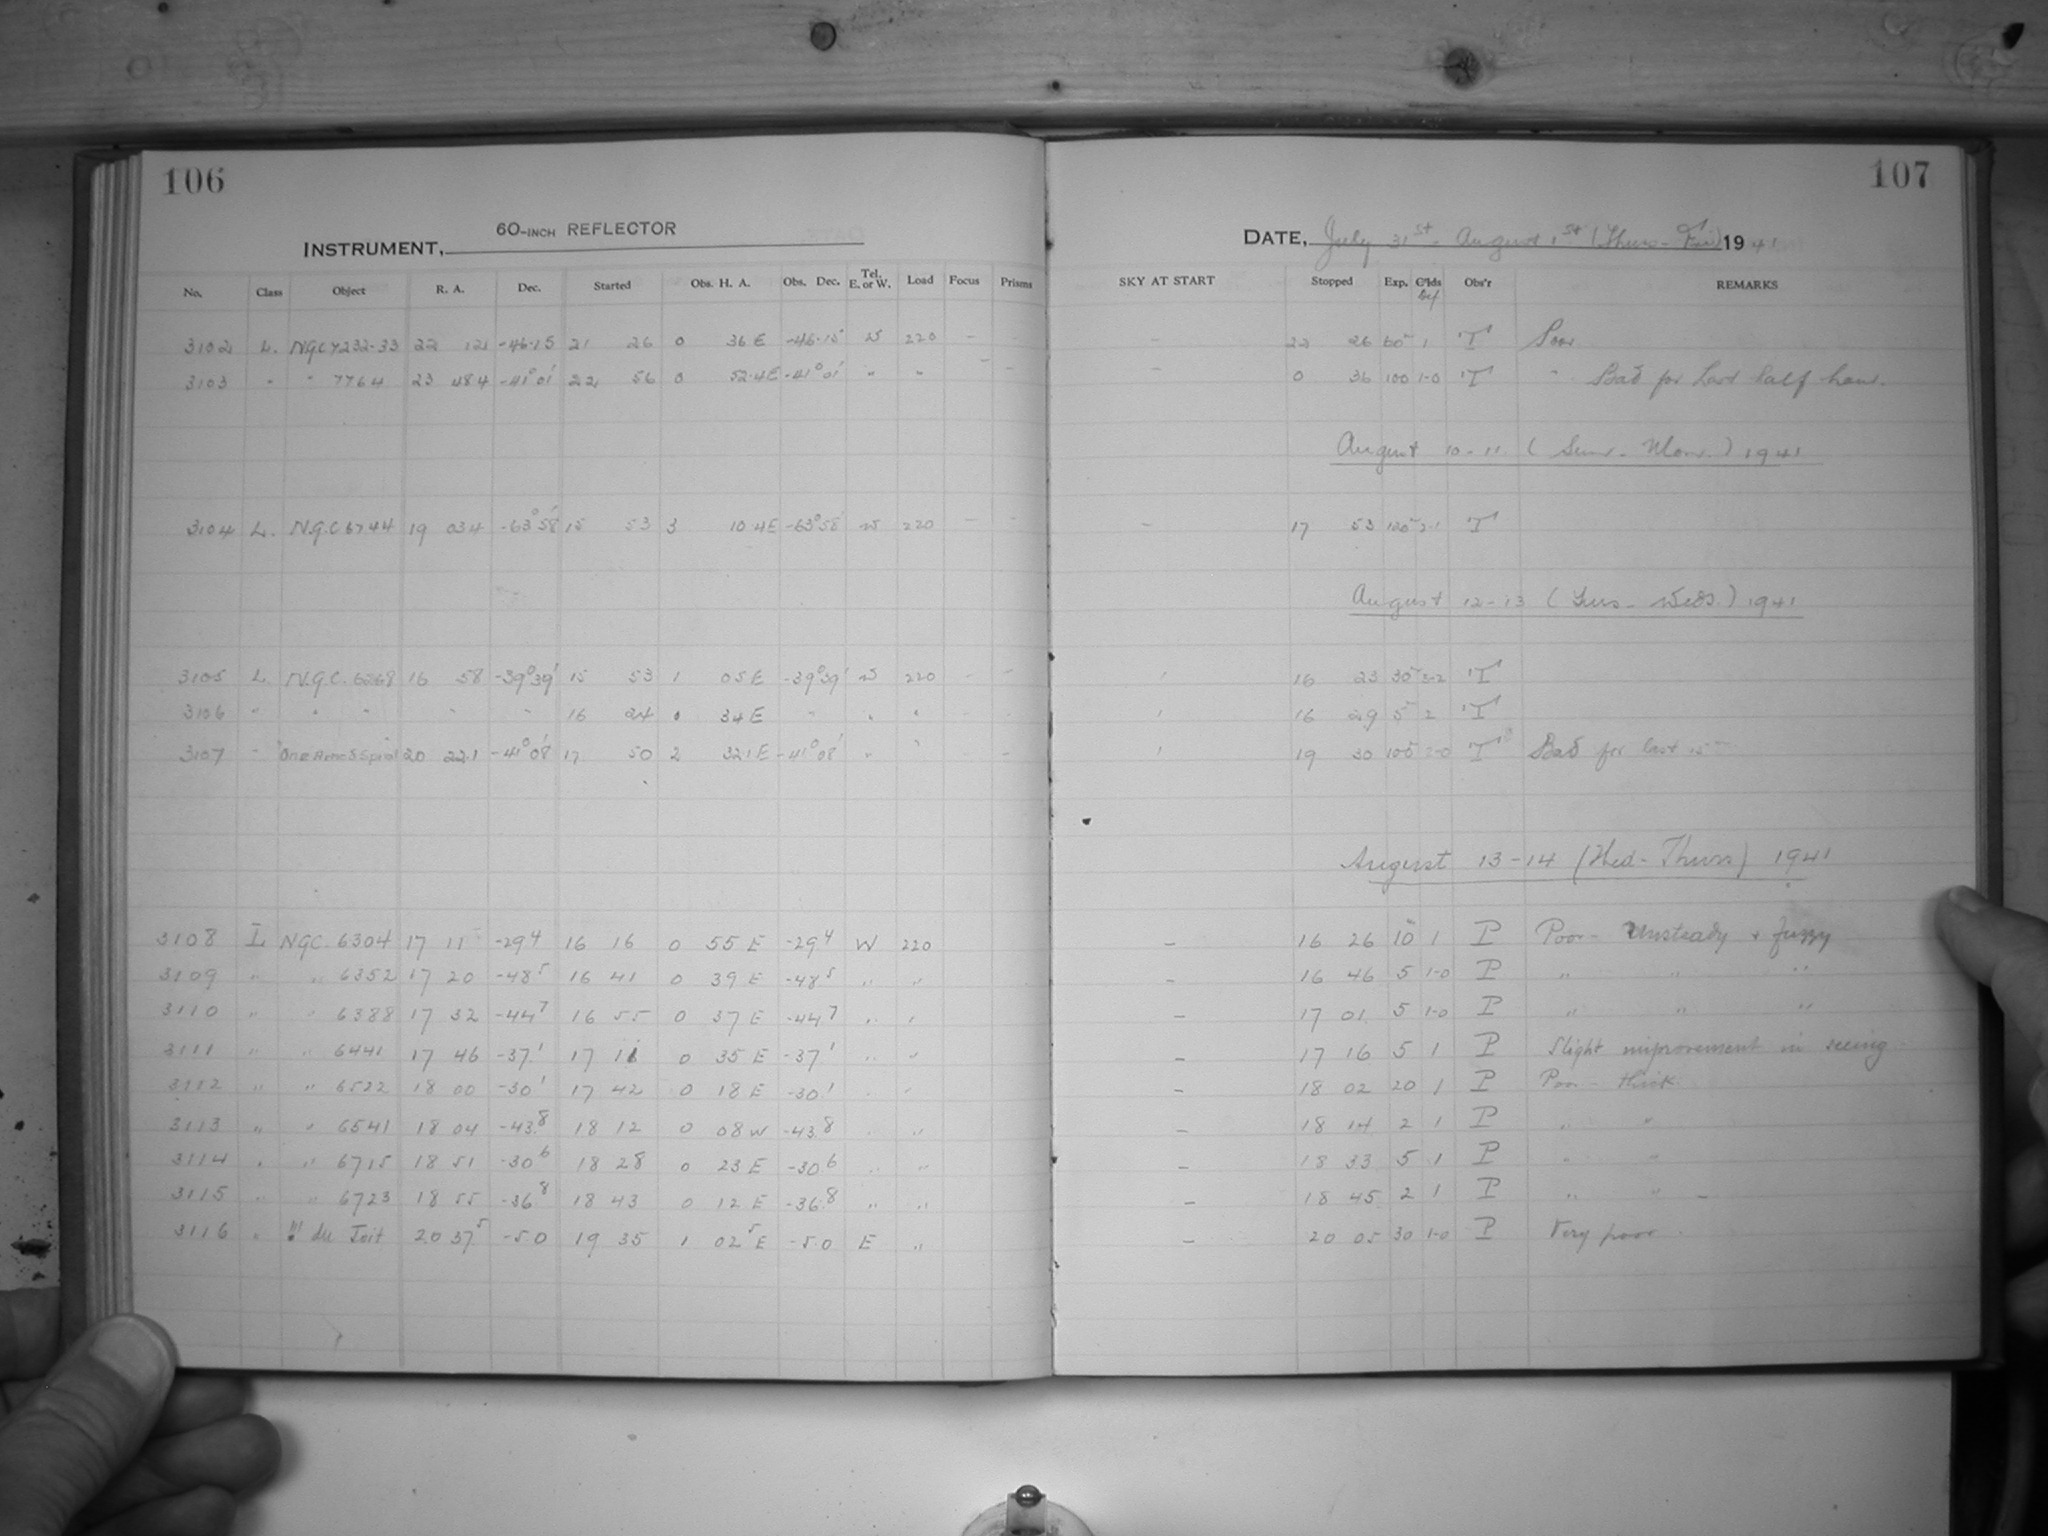 106
107
60-INCH REFLECTOR
INSTRUMENT,
DATE, July 31st - August 1st (Thurs - Fri) 1941
No. Class Object R. A. Dec. Started Obs. H. A. Obs. Dec. Tel. E. or W. Load Focus Prisms SKY AT START Stopped Exp. C'lds Def Obs'r REMARKS
3102 L. NGC 7232-33 22 12 -46.15 21 26 0 36 E -46.15 W 220 - - - 22 26 60 1 T Poor
3103 " " 7764 23 48.4 -41°01' 22 56 0 52.4E -41°01' " " - - 0 36 100 1-0 T " Bad for last half hour.
August 10-11 (Sun - Mon.) 1941
3104 L. N.G.C 6744 19 03.4 -63°58' 15 53 3 10.4E -63°58' W 220 - - - 17 53 120 2-1 T
August 12-13 (Tues - Weds.) 1941
3105 L. N.G.C. 6268 16 58 -39°39' 15 53 1 05 E -39°39' W 220 - - 16 23 30 T
3106 " " " " " 16 24 0 34 E " " " 16 29 5 2 T
3107 " One Armed Spiral 20 22.1 -41°08' 17 50 2 32.1E -41°08' " " - 19 30 100 T Bad for last 15
August 13-14 (Wed - Thurs) 1941
3108 L NGC 6304 17 11 -29.4 16 16 0 55 E -29.4 W 220 - 16 26 10 1 P Poor - Unsteady + fuzzy
3109 " " 6352 17 20 -48.5 16 41 0 39 E -48.5 " " - 16 46 5 1-0 P " " "
3110 " " 6388 17 32 -44.7 16 55 0 37 E -44.7 " " - 17 01 5 1-0 P " " "
3111 " " 6441 17 46 -37.1 17 11 0 35 E -37.1 " " - 17 16 5 1 P Slight improvement in seeing
3112 " " 6522 18 00 -30.1 17 42 0 18 E -30.1 " " - 18 02 20 1 P Poor - thick.
3113 " " 6541 18 04 -43.8 18 12 0 08 W -43.8 " " - 18 14 2 1 P " "
3114 " " 6715 18 51 -30.6 18 28 0 23 E -30.6 " " - 18 33 5 1 P " "
3115 " " 6723 18 55 -36.8 18 43 0 12 E -36.8 " " - 18 45 2 1 P " " -
3116 " !!! du Toit 20 37.5 -50 19 35 1 02.5 E -50 E " - 20 05 30 1-0 P Very poor.